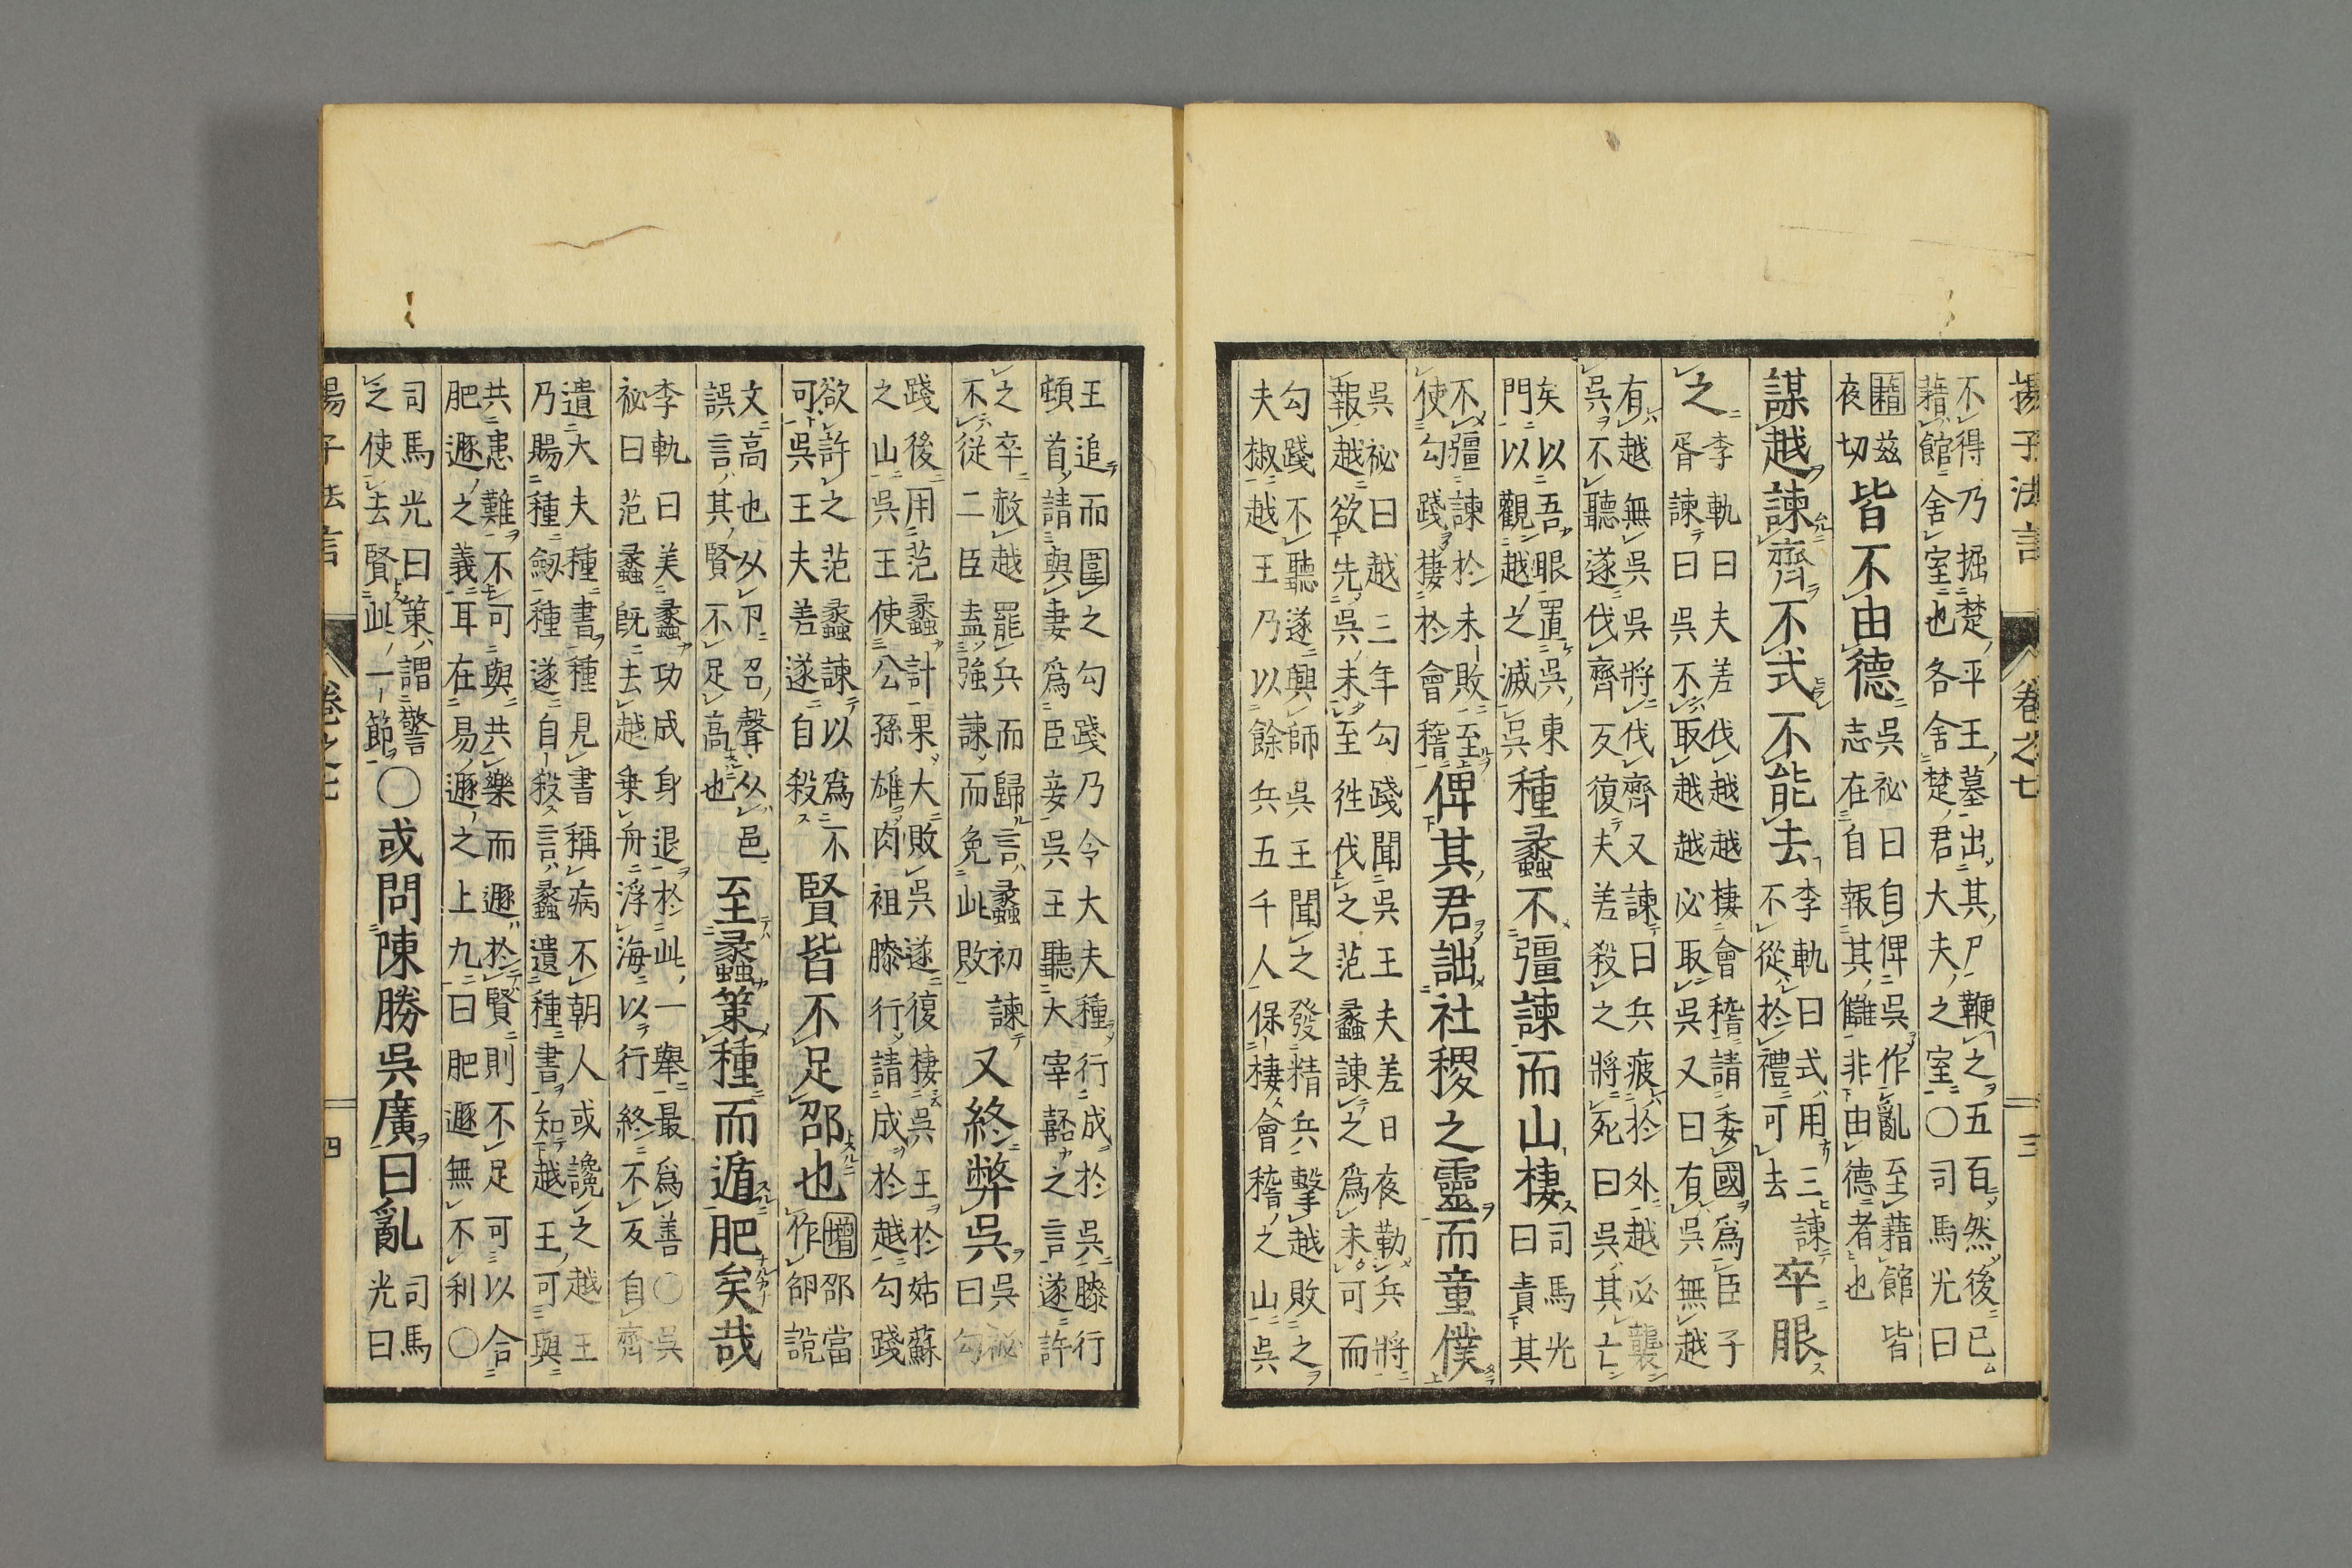 揚子法言 卷之七 三
不得乃掘楚平王墓出其尸鞭之五百然後已
藉館舍室也各舍楚君大夫之室○司馬光曰
藉茲
夜切
皆不由德
吳祕曰自俾吳作亂至藉館皆
志在自報其讎非由德者也
謀越諫齊不式不能去
李軌曰式用三諫
不從於禮可去
卒眼
之
李軌曰夫差伐越越棲會稽請委國爲臣子
胥諫曰吳不取越越必取吳又曰有吳無越
有越無吳吳將伐齊又諫曰兵疲於外越必襲
吳不聽遂伐齊反復夫差殺之將死曰吳其亡
矣以吾眼置吳東
門以觀越之滅吳
種蠡不彊諫而山棲
司馬光
曰責其
不彊諫於未敗至
使勾踐棲於會稽
俾其君詘社稷之靈而童僕
吳祕曰越三年勾踐聞吳王夫差日夜勒兵將
報越欲先吳未至徃伐之范蠡諫之爲未可而
勾踐不聽遂興師吳王聞之發精兵擊越敗之
夫椒越王乃以餘兵五千人保棲會稽之山吳
王追而圍之勾踐乃令大夫種行成於吳膝行
頓首請與妻爲臣妾吳王聽大宰嚭之言遂許
之卒赦越罷兵而歸言蠡初諫
不從二臣盍強諫而免此敗
又終弊吳
吳祕
曰勾
踐後用范蠡計果大敗吳遂復棲吳王於姑蘇
之山吳王使公孫雄肉袒膝行請成於越勾踐
欲許之范蠡諫以爲不
可吳王夫差遂自殺
賢皆不足邵也
增邵當
作卲說
文高也从卩召聲从邑
誤言其賢不足高也
至蠡策種而遁肥矣哉
李軌曰美蠡功成身退於此一舉最爲善○吳
祕曰范蠡既去越乗舟浮海以行終不反自齊
遺大夫種書種見書稱病不朝人或讒之越王
乃賜種劔種遂自殺言蠡遺種書知越王可與
共患難不可與共樂而遯於賢則不足可以合
肥遯之義耳在易遯之上九曰肥遯無不利○
司馬光曰策謂警
之使去賢此一節
○或問陳勝吳廣曰亂
司馬
光曰
揚子法言 卷之七 四